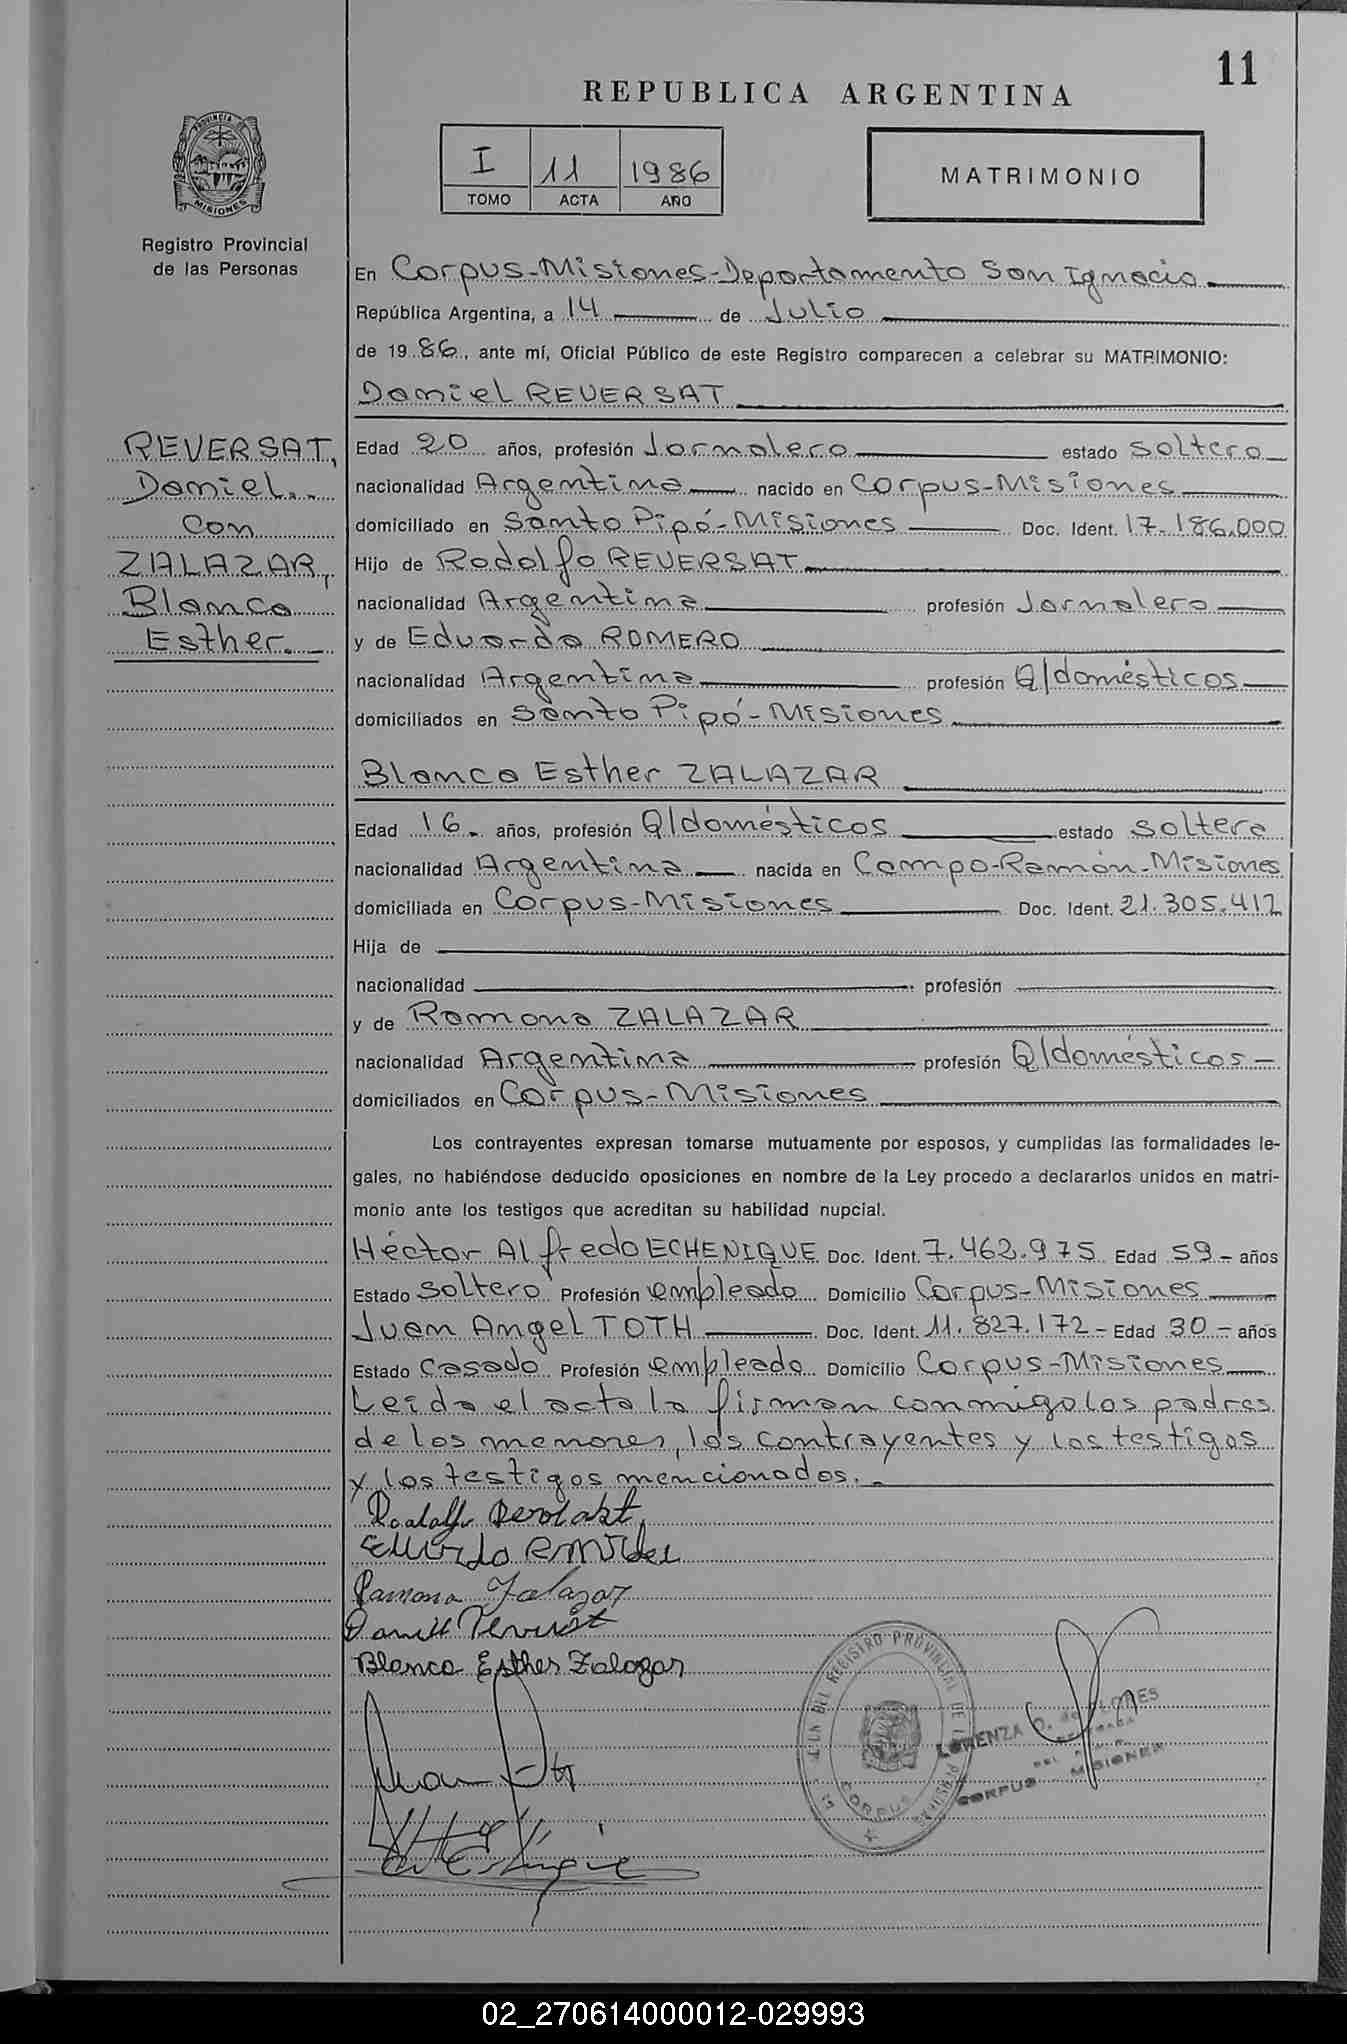 11
REPUBLICA ARGENTINA
I 11 1986
TOMO ACTA AÑO
MATRIMONIO
PROVINCIA DE MISIONES
Registro Provincial
de las Personas
En Corpus-Misiones-Departamento San Ignacio
República Argentina, a 14 de Julio
de 1986, ante mí, Oficial Público de este Registro comparecen a celebrar su MATRIMONIO:
Daniel REVERSAT
REVERSAT,
Daniel
Con
ZALAZAR,
Blanca
Esther.
Edad 20 años, profesión Jornalero estado soltero
nacionalidad Argentina nacido en Corpus-Misiones
domiciliado en Santo Pipó-Misiones Doc. Ident. 17.186.000
Hijo de Rodolfo REVERSAT
nacionalidad Argentina profesión Jornalero
y de Eduarda ROMERO
nacionalidad Argentina profesión Q/domésticos
domiciliados en Santo Pipó-Misiones
Blanca Esther ZALAZAR
Edad 16 años, profesión Q/domésticos estado soltera
nacionalidad Argentina nacida en Campo-Ramón-Misiones
domiciliada en Corpus-Misiones Doc. Ident. 21.305.417
Hija de
nacionalidad profesión
y de Ramona ZALAZAR
nacionalidad Argentina profesión Q/domésticos
domiciliados en Corpus-Misiones
Los contrayentes expresan tomarse mutuamente por esposos, y cumplidas las formalidades le-
gales, no habiéndose deducido oposiciones en nombre de la Ley procedo a declararlos unidos en matri-
monio ante los testigos que acreditan su habilidad nupcial.
Héctor Alfredo ECHENIQUE Doc. Ident. 7.462.975 Edad 59 años
Estado soltero Profesión empleado Domicilio Corpus-Misiones
Juan Angel TOTH Doc. Ident. 11.827.172 Edad 30 años
Estado Casado Profesión empleado Domicilio Corpus-Misiones
Leída el acta la firman conmigo los padres
de los menores, los contrayentes y los testigos
y los testigos mencionados.
Ramona Zalazar
Blanca Esther Zalazar
DEL REGISTRO PROVINCIAL DE LAS PERSONAS
CORPUS
LORENZA D. de FLORES
CORPUS MISIONES
02_270614000012-029993